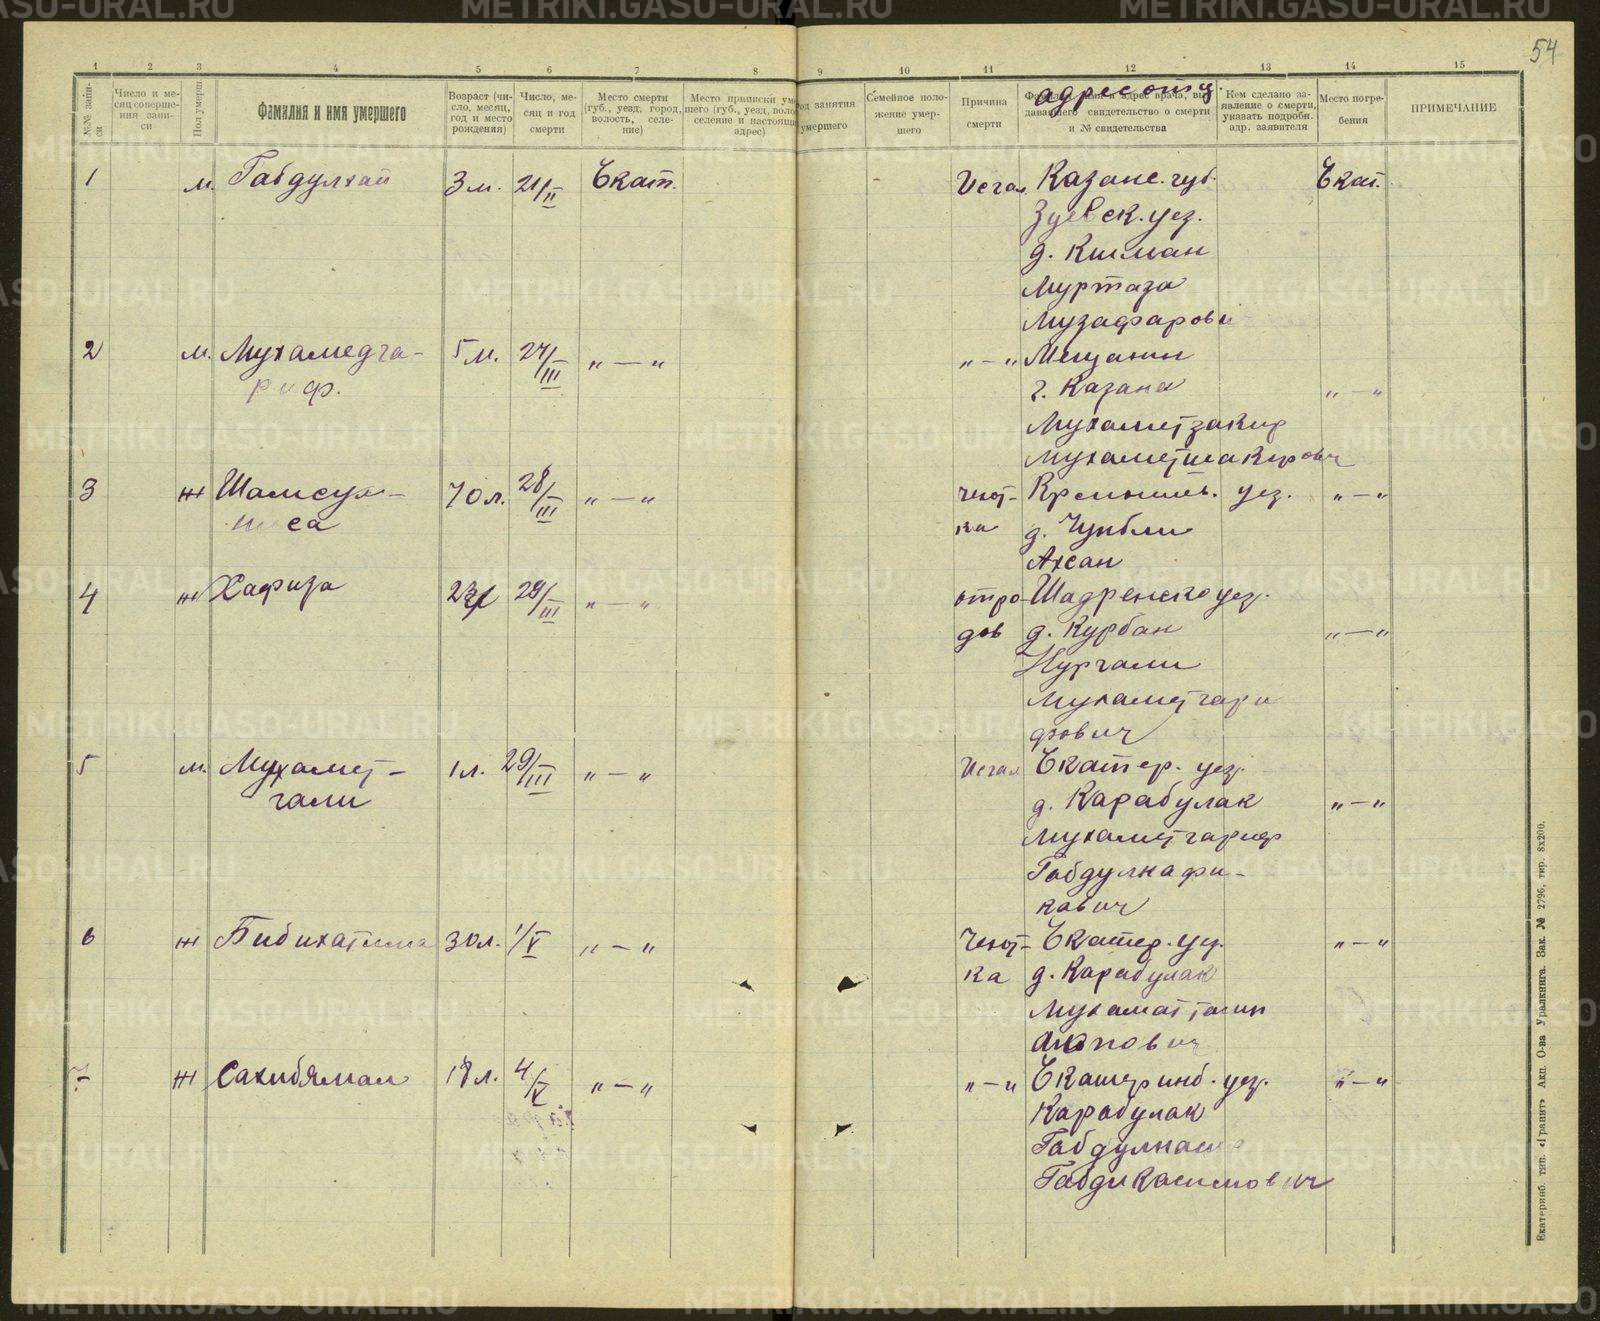 METRIKI.GASO-URAL.RU
54
1 2 3 4 5 6 7 8 9 10 11 12 13 14 15
№№ записи
Число и месяц совершения записи
Пол умерш.
Фамилия и имя умершего
Возраст (число, месяц, год и место рождения)
Число, месяц и год смерти
Место смерти (губ., уезд, город, волость, селение)
Место приписки
шего (губ., уезд,
селение и настоящ
адрес)
занятия
умершего
Семейное положение умершего
Причина смерти
адрес отца
и адрес врача,
дававшего свидетельство о смерти
и № свидетельства
Кем сделано заявление о смерти, указать подробн. адр. заявителя
Место погребения
ПРИМЕЧАНИЕ
1 м. Габдулхай 3 м. 21/II Екат. Казанс. губ. Екат.
Зуевск. уез.
д.
Муртаза
Музафарови
2 м. Мухамедга- 5 м. 24/III „ — „ „ — „ Мещанин
риф. г. Казана „ — „
Мухаметзакир
Мухаметшакирович
3 ж 70 л. 28/III „ — „ чехот- уез. „ — „
ка д.
Ахсан
4 ж Хафиза 29/III „ — „ Шадренско уез.
д. Курбан „ — „
Нургали
Мухаметгари
фович
5 м. Мухамет- 1 л. 29/III „ — „ Екатер. уез.
гали д. Карабулак „ — „
Мухаметгариф
Габдулкафи-
кович
6 ж Бибихатима 30 л. 1/V „ — „ Чехот- Екатер. уез. „ — „
ка д. Карабулак
7 ж Сахибямал 18 л. 4/V „ — „ „ — „ Екатеринб. уез. „ — „
Карабулак
Габдикасимович
Екатеринб. тип. «Гранит» Акц. О-ва Уралкнига. Зак. № 2796, тир. 8х200.